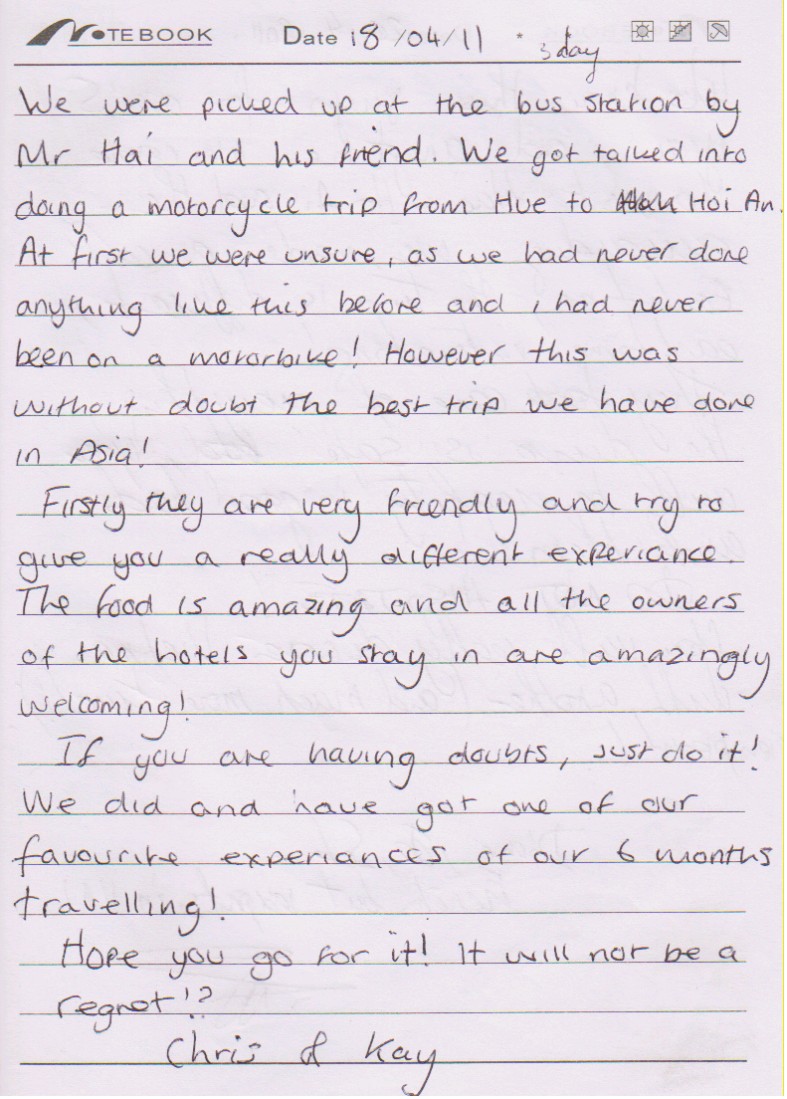 NOTEBOOK Date 18/04/11 • 3 day
We were picked up at the bus station by
Mr Hai and his friend. We got talked into
doing a motorcycle trip from Hue to Hoi An.
At first we were unsure, as we had never done
anything like this before and i had never
been on a motorbike! However this was
without doubt the best trip we have done
in Asia!
Firstly they are very friendly and try to
give you a really different experiance.
The food is amazing and all the owners
of the hotels you stay in are amazingly
welcoming!
If you are having doubts, just do it!
We did and have got one of our
favourite experiances of our 6 months
travelling!
Hope you go for it! It will not be a
regret!?
Chris & Kay